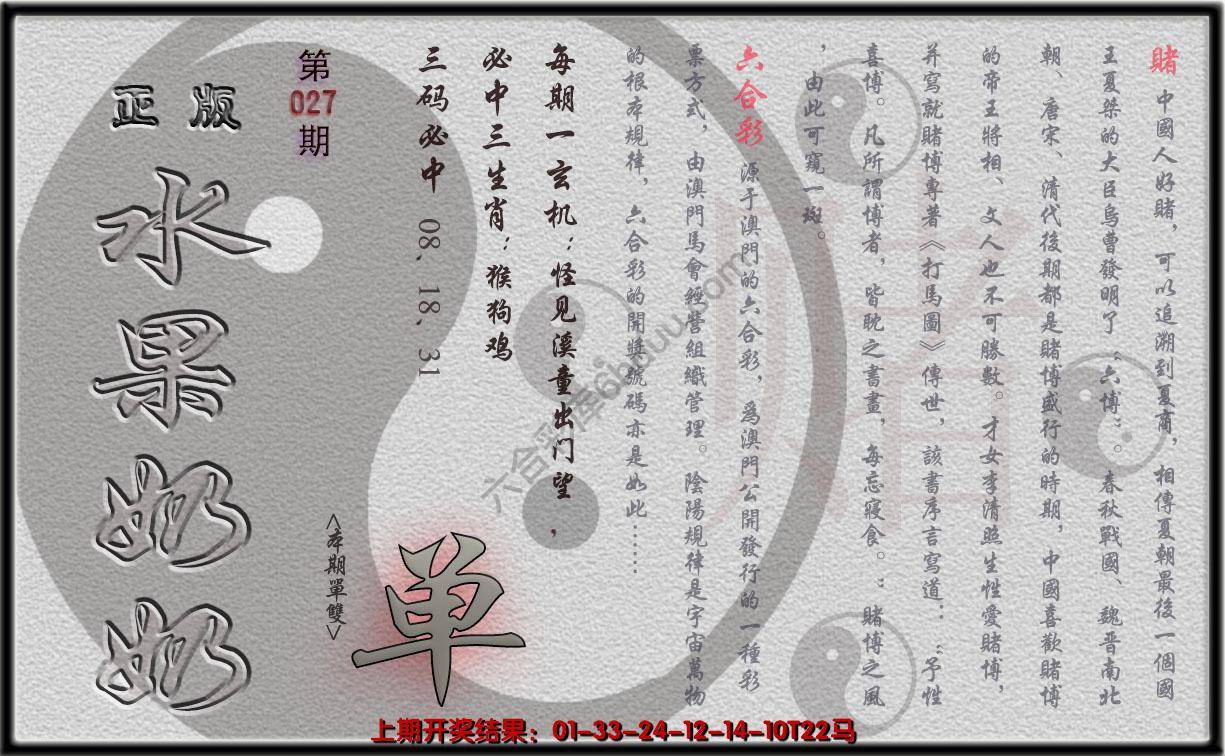 賭 中國人好賭，可以追溯到夏商，相傳夏朝最後一個國
王夏桀的大臣烏曹發明了“六博”。春秋戰國、魏晋南北
朝、唐宋、清代後期都是賭博盛行的時期，中國喜歡賭博
的帝王將相、文人也不可勝數。才女李清照生性愛賭博，
并寫就賭博專著《打馬圖》傳世，該書序言寫道：“予性
喜博。凡所謂博者，皆耽之書畫，每忘寢食。”賭博之風
，由此可窺一斑。
六合彩 源于澳門的六合彩，爲澳門公開發行的一種彩
票方式，由澳門馬會經營組織管理。陰陽規律是宇宙萬物
的根本規律，六合彩的開獎號碼亦是如此……
每期一玄机：怪见溪童出门望，
必中三生肖：猴狗鸡
三码必中 08、18、31
第
027
期
正版
水果奶奶
<本期單雙>
单
上期开奖结果：01-33-24-12-14-10T22马